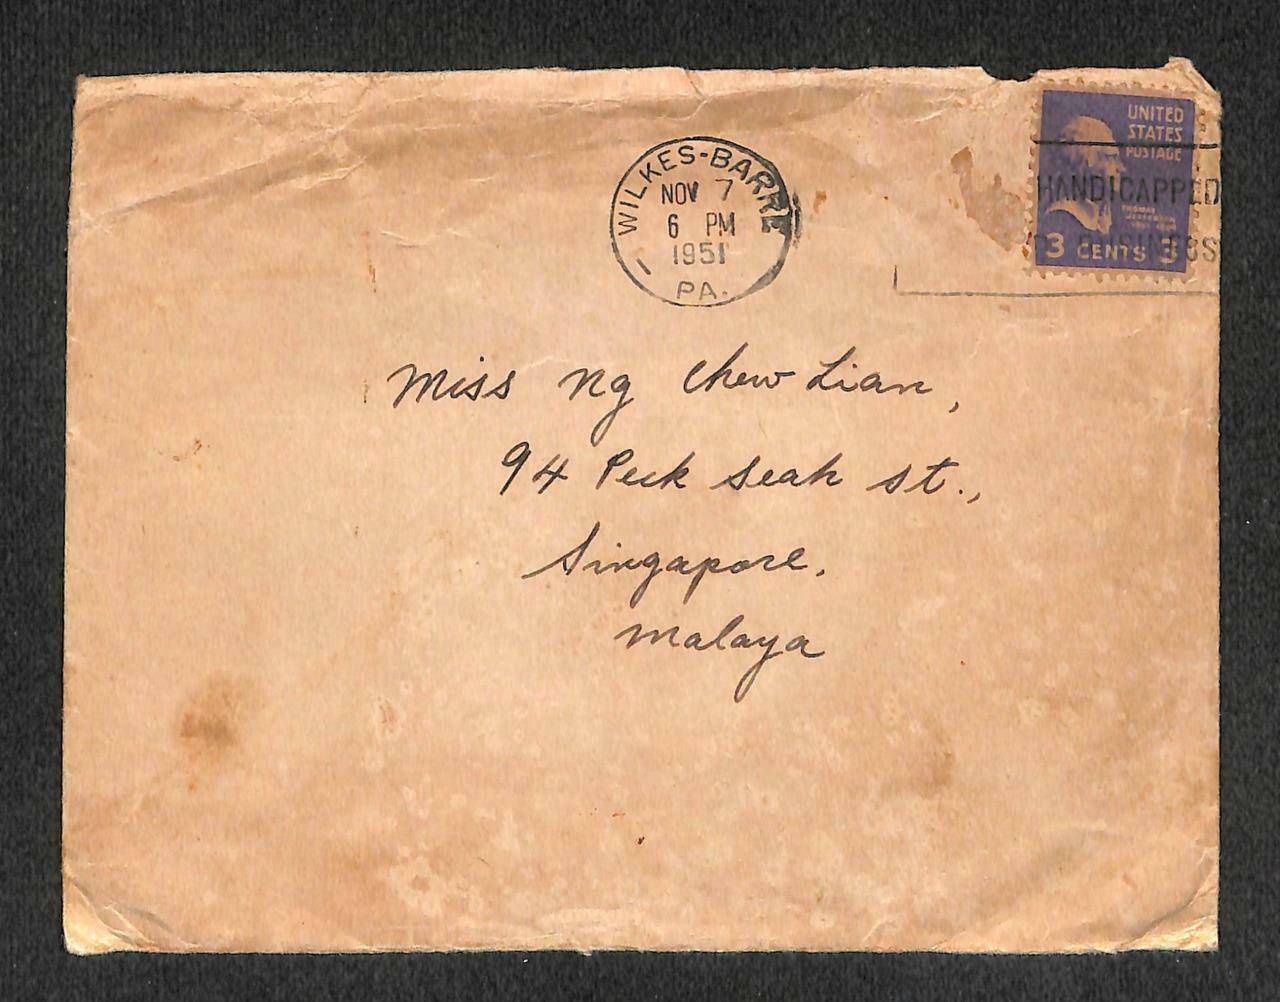 WILKES-BARRE
NOV 7
6 PM
1951
PA.
UNITED
STATES
POSTAGE
HANDICAPPED
THOMAS
JEFFERSON
3 CENTS 3
Miss Ng Chew Lian,
94 Peck Seah St.,
Singapore.
Malaya